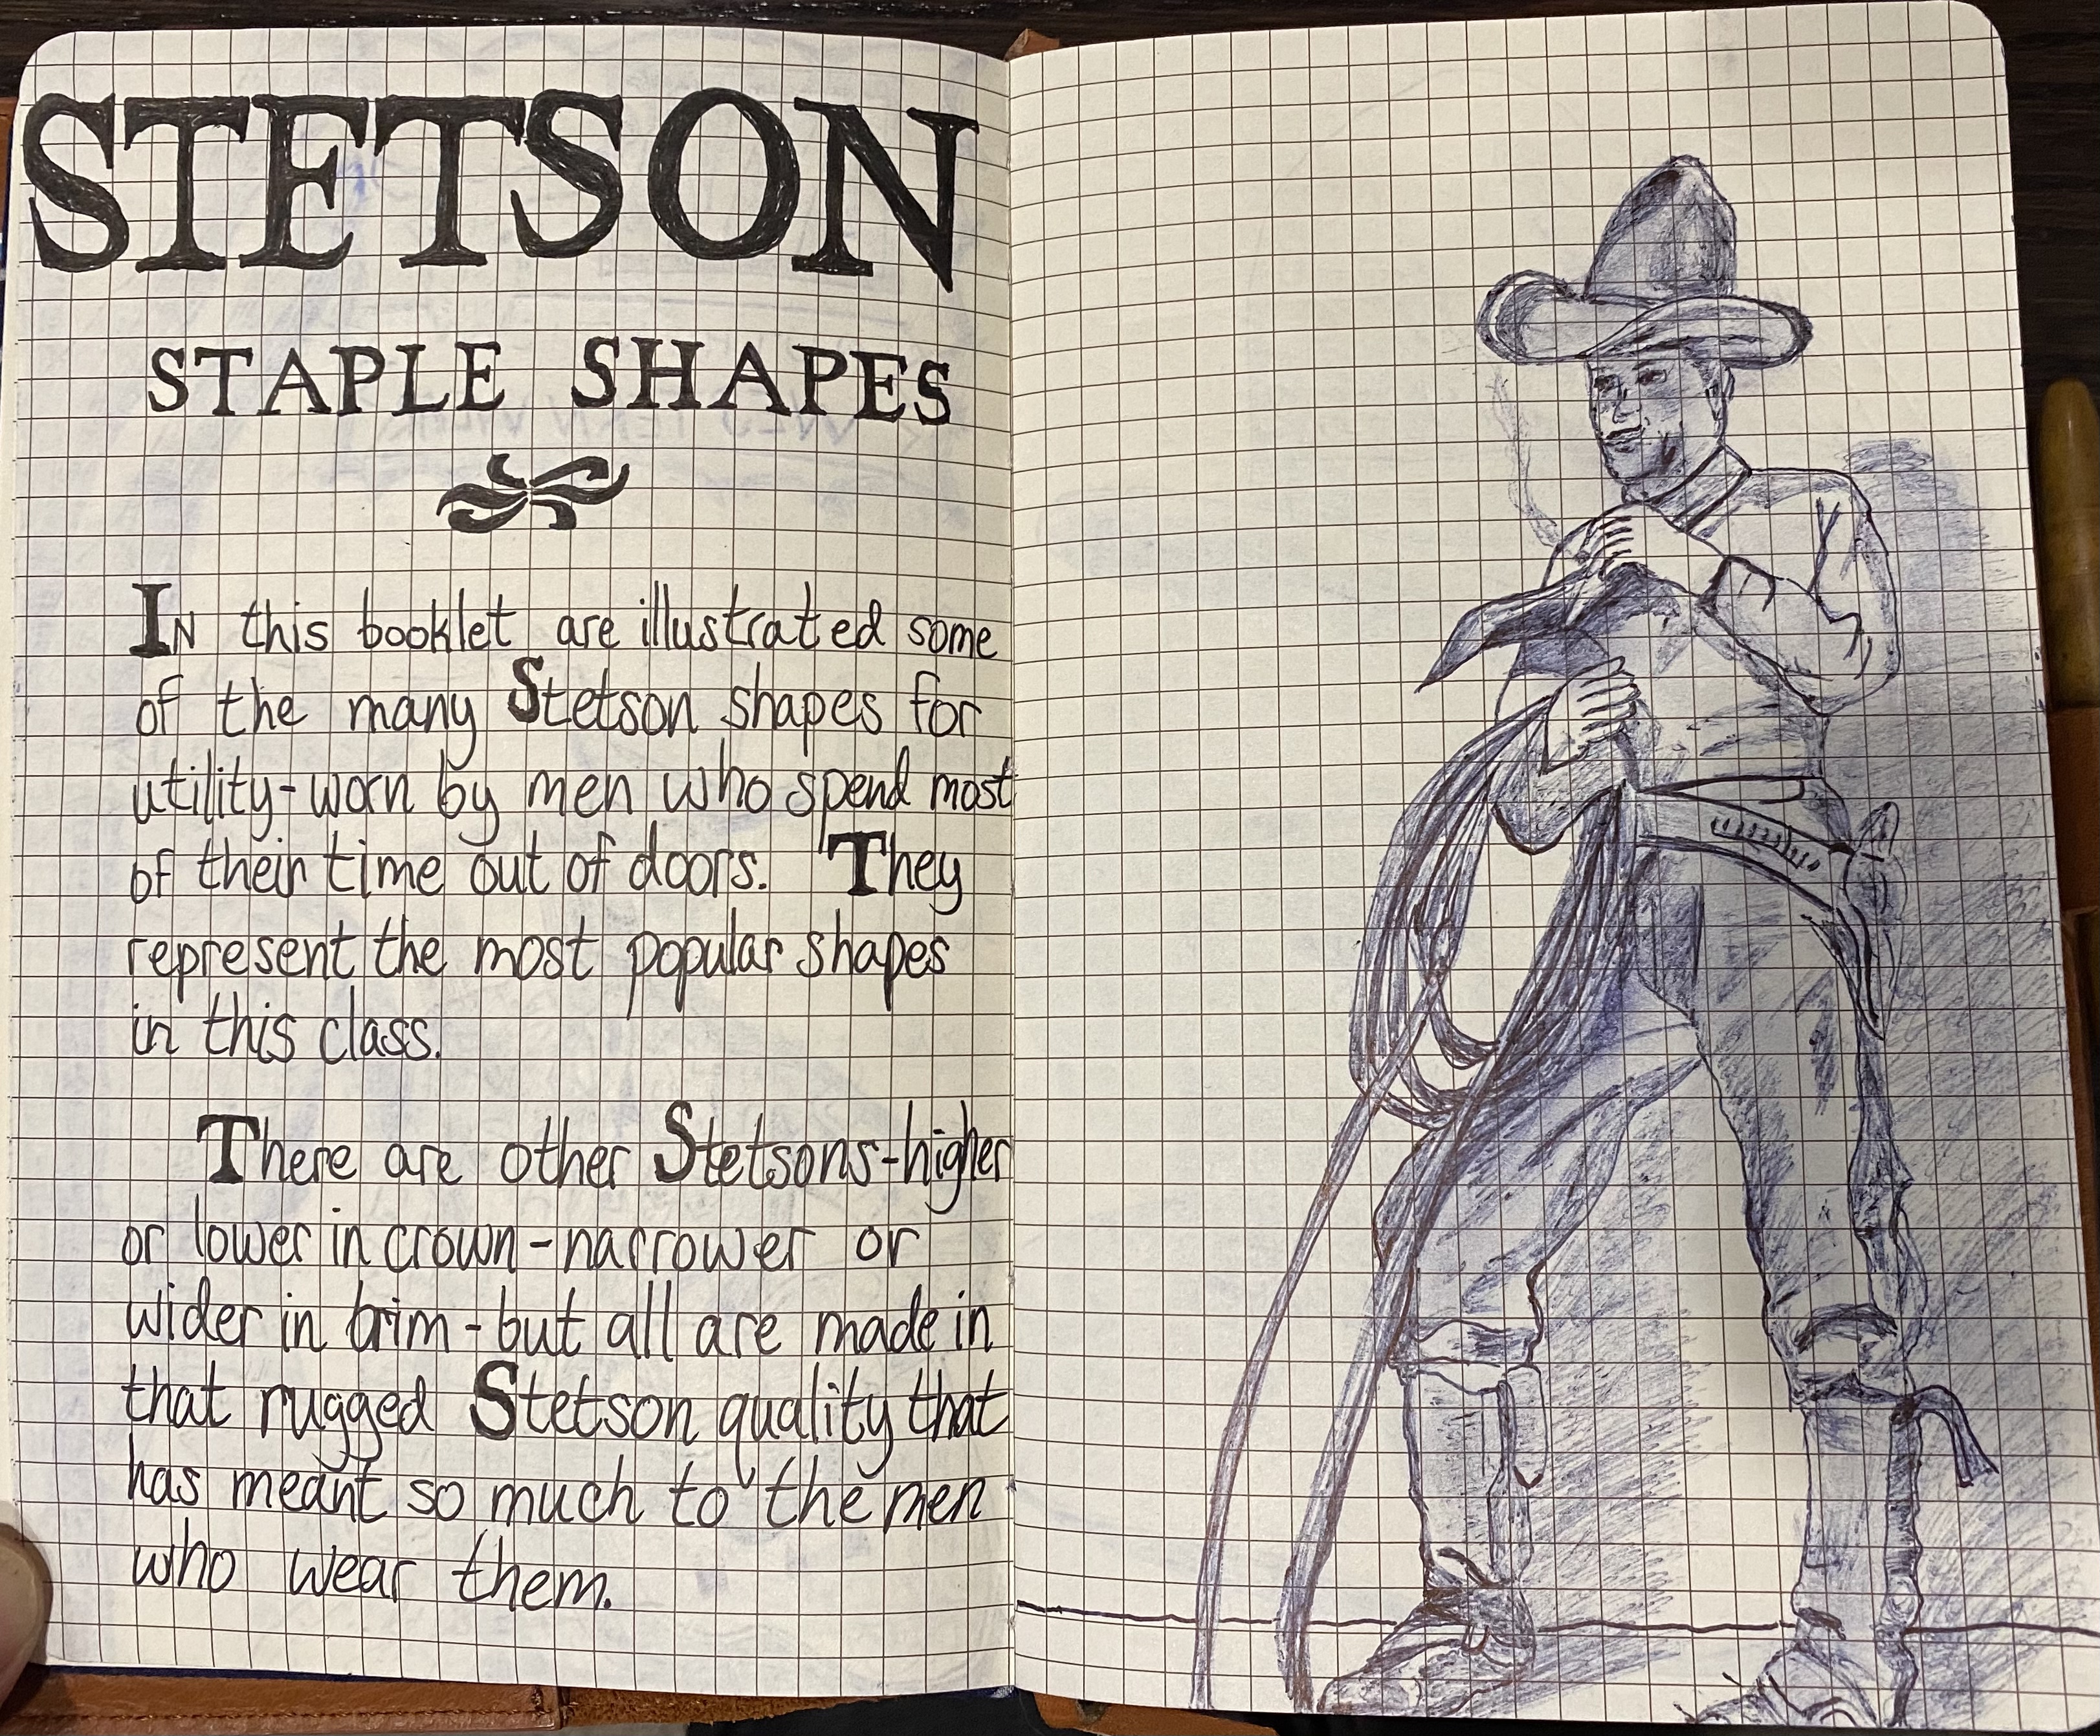 STETSON
STAPLE SHAPES
IN this booklet are illustrated some
of the many Stetson shapes for
utility-worn by men who spend most
of their time out of doors. They
represent the most popular shapes
in this class.
There are other Stetsons-higher
or lower in crown-narrower or
wider in brim-but all are made in
that rugged Stetson quality that
has meant so much to the men
who wear them.